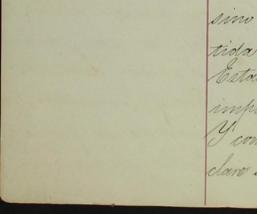 sino
tida
Esta
impo
Y con
claro